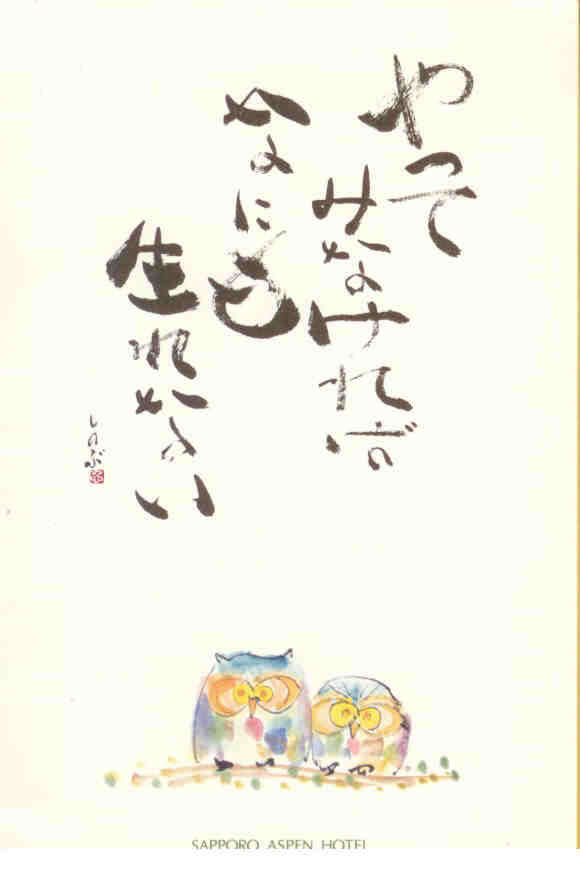 やって
みなければ
なにも
生れない
しのぶ
SAPPORO ASPEN HOTEL